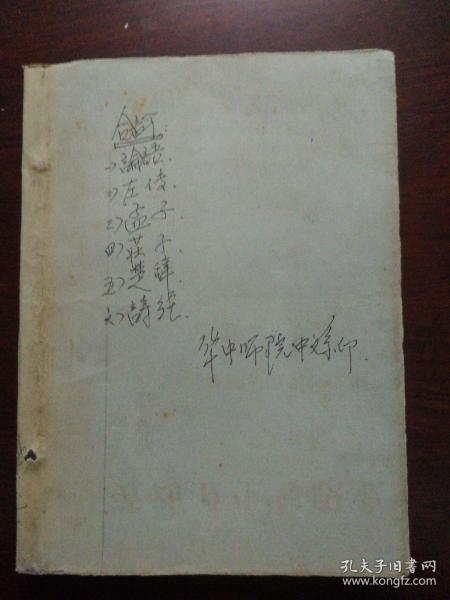 合訂
一)論語
二)左传
三)孟子
四)莊子
五)楚辞
六)詩經
华中师院中文系印
孔夫子旧书网
www.kongfz.com